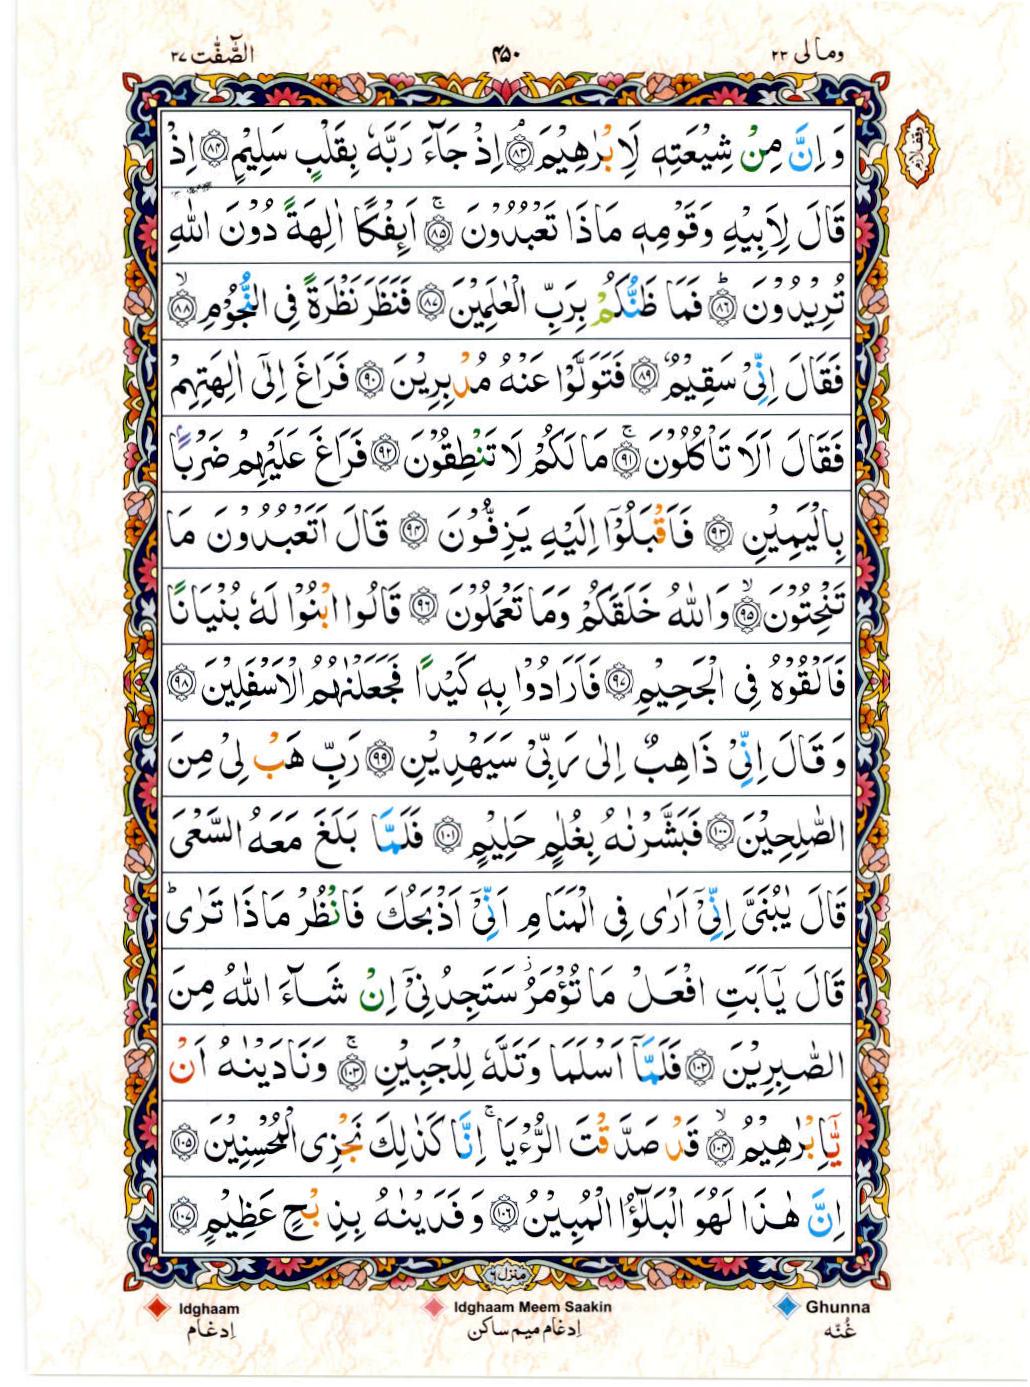 وما لی ۲۳
۴۵۰
الصّٰٓفّٰت ۳۷
وَ اِنَّ مِنْ شِيْعَتِهٖ لَاِبْرٰهِيْمَ ﴿۸۳﴾ۘ اِذْ جَآءَ رَبَّهٗ بِقَلْبٍ سَلِيْمٍ ﴿۸۴﴾ اِذْ
قَالَ لِاَبِيْهِ وَقَوْمِهٖ مَاذَا تَعْبُدُوْنَ ﴿۸۵﴾ۚ اَئِفْكًا اٰلِهَةً دُوْنَ اللّٰهِ
تُرِيْدُوْنَ ﴿۸۶﴾ؕ فَمَا ظَنُّكُمْ بِرَبِّ الْعٰلَمِيْنَ ﴿۸۷﴾ فَنَظَرَ نَظْرَةً فِى النُّجُوْمِ ﴿۸۸﴾ۙ
فَقَالَ اِنِّىْ سَقِيْمٌ ﴿۸۹﴾ فَتَوَلَّوْا عَنْهُ مُدْبِرِيْنَ ﴿۹۰﴾ فَرَاغَ اِلٰٓى اٰلِهَتِهِمْ
فَقَالَ اَلَا تَاْكُلُوْنَ ﴿۹۱﴾ۚ مَا لَكُمْ لَا تَنْطِقُوْنَ ﴿۹۲﴾ فَرَاغَ عَلَيْهِمْ ضَرْبًاۢ
بِالْيَمِيْنِ ﴿۹۳﴾ فَاَقْبَلُوْۤا اِلَيْهِ يَزِفُّوْنَ ﴿۹۴﴾ قَالَ اَتَعْبُدُوْنَ مَا
تَنْحِتُوْنَ ﴿۹۵﴾ۙ وَاللّٰهُ خَلَقَكُمْ وَمَا تَعْمَلُوْنَ ﴿۹۶﴾ قَالُوا ابْنُوْا لَهٗ بُنْيَانًا
فَاَلْقُوْهُ فِى الْجَحِيْمِ ﴿۹۷﴾ فَاَرَادُوْا بِهٖ كَيْدًا فَجَعَلْنٰهُمُ الْاَسْفَلِيْنَ ﴿۹۸﴾
وَقَالَ اِنِّىْ ذَاهِبٌ اِلٰى رَبِّىْ سَيَهْدِيْنِ ﴿۹۹﴾ رَبِّ هَبْ لِىْ مِنَ
الصّٰلِحِيْنَ ﴿۱۰۰﴾ فَبَشَّرْنٰهُ بِغُلٰمٍ حَلِيْمٍ ﴿۱۰۱﴾ فَلَمَّا بَلَغَ مَعَهُ السَّعْىَ
قَالَ يٰبُنَىَّ اِنِّىْۤ اَرٰى فِى الْمَنَامِ اَنِّىْۤ اَذْبَحُكَ فَانْظُرْ مَاذَا تَرٰىؕ
قَالَ يٰۤاَبَتِ افْعَلْ مَا تُؤْمَرُؗ سَتَجِدُنِىْۤ اِنْ شَآءَ اللّٰهُ مِنَ
الصّٰبِرِيْنَ ﴿۱۰۲﴾ فَلَمَّاۤ اَسْلَمَا وَتَلَّهٗ لِلْجَبِيْنِ ﴿۱۰۳﴾ۚ وَنَادَيْنٰهُ اَنْ
يّٰۤاِبْرٰهِيْمُ ﴿۱۰۴﴾ۙ قَدْ صَدَّقْتَ الرُّءْيَاۚ اِنَّا كَذٰلِكَ نَجْزِى الْمُحْسِنِيْنَ ﴿۱۰۵﴾
اِنَّ هٰذَا لَهُوَ الْبَلٰٓؤُا الْمُبِيْنُ ﴿۱۰۶﴾ وَفَدَيْنٰهُ بِذِبْحٍ عَظِيْمٍ ﴿۱۰۷﴾
منزل ٦
Idghaam Idghaam Meem Saakin Ghunna
اِدغَام اِدغام میم ساکن غُنّه